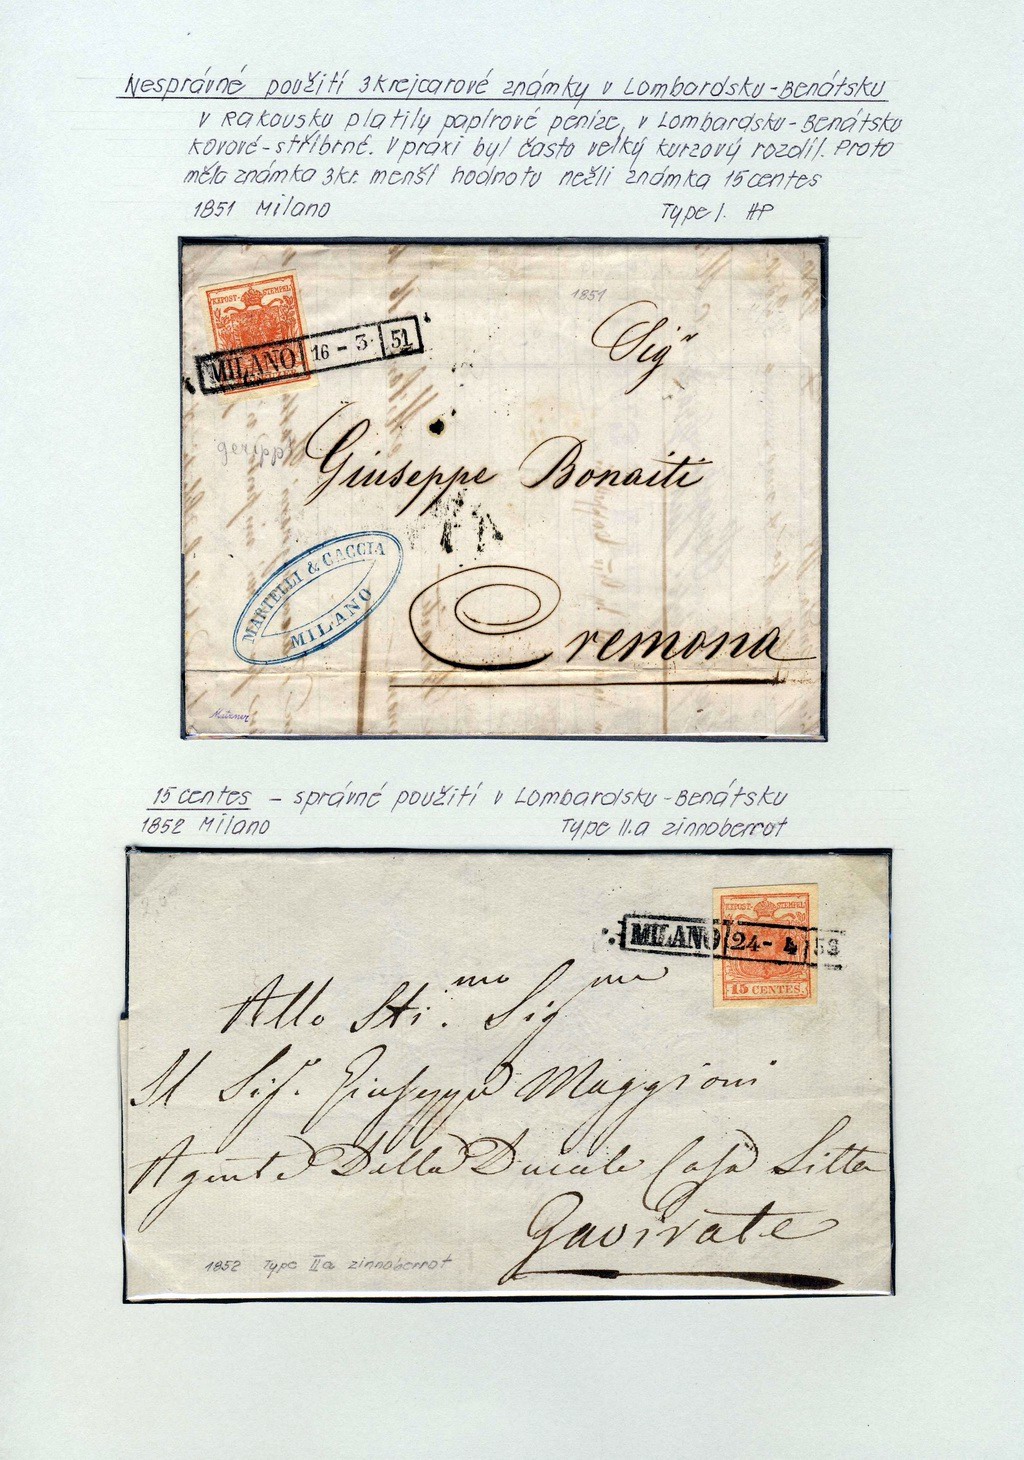 Nesprávné použití 3krejcarové známky v Lombardsku-Benátsku
v Rakousku platily papírové peníze, v Lombardsku-Benátsku
kovové-stříbrné. V praxi byl často velký kurzový rozdíl. Proto
měla známka 3kr. menší hodnotu nežli známka 15centes
1851 Milano Type I. HP
KKPOST-STEMPEL
1851
MILANO 16 - 3 51
Sigr
geripp
Giuseppe Bonaiti
MARTELLI & CACCIA
MILANO
Cremona
15centes - správné použití v Lombardsku-Benátsku
1852 Milano Type II.a zinnoberrot
KKPOST-STEMPEL
MILANO 24- 4 52
15 CENTES.
Allo Sti.mo Sig
Il Sigr. Giuseppe Maggioni
Agente Della Ducale Casa Litta
Gavirate
1852 Type IIa zinnoberrot